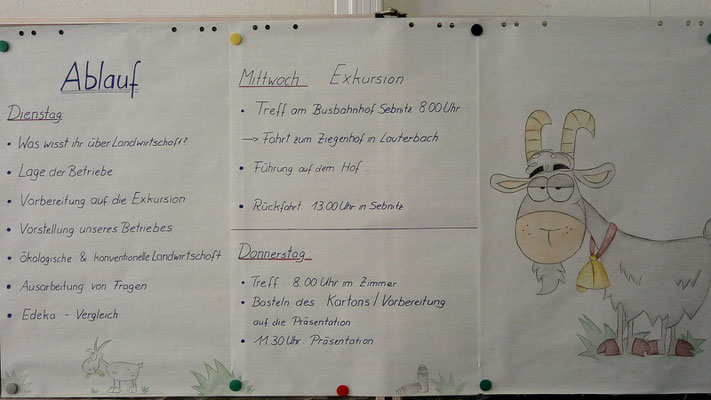 Ablauf
Dienstag:
• Was wisst ihr über Landwirtschaft?
• Lage der Betriebe
• Vorbereitung auf die Exkursion
• Vorstellung unseres Betriebes
• Ökologische & konventionelle Landwirtschaft
• Ausarbeitung von Fragen
• Edeka - Vergleich
Mittwoch: Exkursion
• Treff am Busbahnhof Sebnitz 8.00 Uhr
→ Fahrt zum Ziegenhof in Lauterbach
• Führung auf dem Hof ...
• Rückfahrt: 13.00 Uhr in Sebnitz
Donnerstag:
• Treff: 8.00 Uhr im Zimmer
• Basteln des Kartons / Vorbereitung
auf die Präsentation
• 11.30 Uhr Präsentation